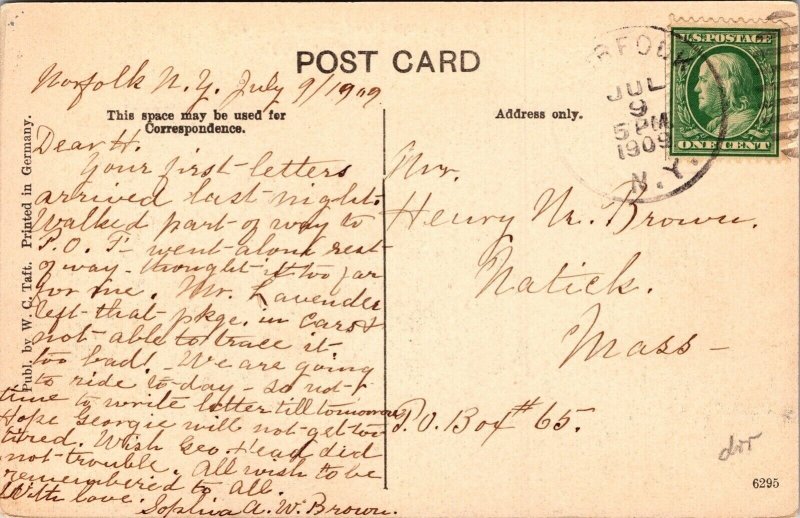 POST CARD
Norfolk N.Y. July 9/1909
This space may be used for
Correspondence.
Dear H.
Your first letters
arrived last night.
Walked part of way to
P.O. T- went alone rest
of way - thought it too far
for me. Mr. Lavender
left that pkge. in cars &
not able to trace it
too bad! We are going
to ride to-day - so not
time to write letter till tomorrow
Hope Georgie will not get too
tired. Wish Geo. Head did
not trouble. All wish to be
remembered to all.
With love. Sophia A. W. Brown.
Publ. by W. C. Taft. Printed in Germany.
Address only.
Mr.
Henry W. Brown.
Natick.
Mass -
P.O. Box # 65.
JUL
9
5 PM
1909
N.Y.
U.S. POSTAGE
ONE CENT
6295